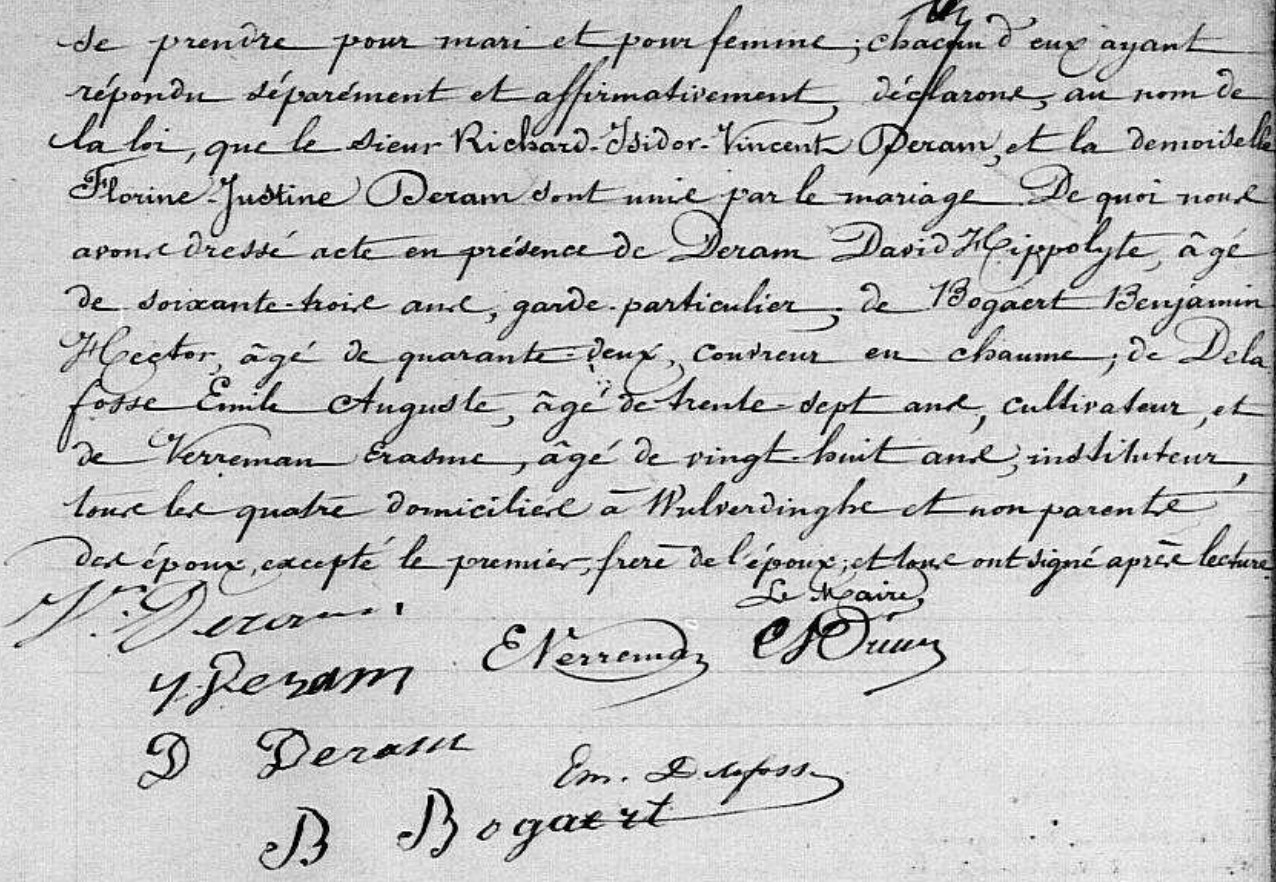 se prendre pour mari et pour femme ; chacun d'eux ayant
répondu séparément et affirmativement, déclarons, au nom de
la loi, que le sieur Richard-Isidor-Vincent Deram, et la demoiselle
Florine-Justine Deram sont unis par le mariage. De quoi nous
avons dressé acte en présence de Deram David Hippolyte, âgé
de soixante-trois ans, garde-particulier, de Bogaert Benjamin
Hector, âgé de quarante-deux, couvreur en chaume ; de Dela
fosse Emile Auguste, âgé de trente-sept ans, cultivateur, et
de Verreman Erasme, âgé de vingt-huit ans, instituteur,
tous les quatre domiciliés à Wulverdinghe et non parents
des époux, excepté le premier, frère de l'époux ; et tous ont signé après lecture.
Le Maire,
V. Deram
E Verreman
Deram
D Deram
Em. Delafosse
B Bogaert